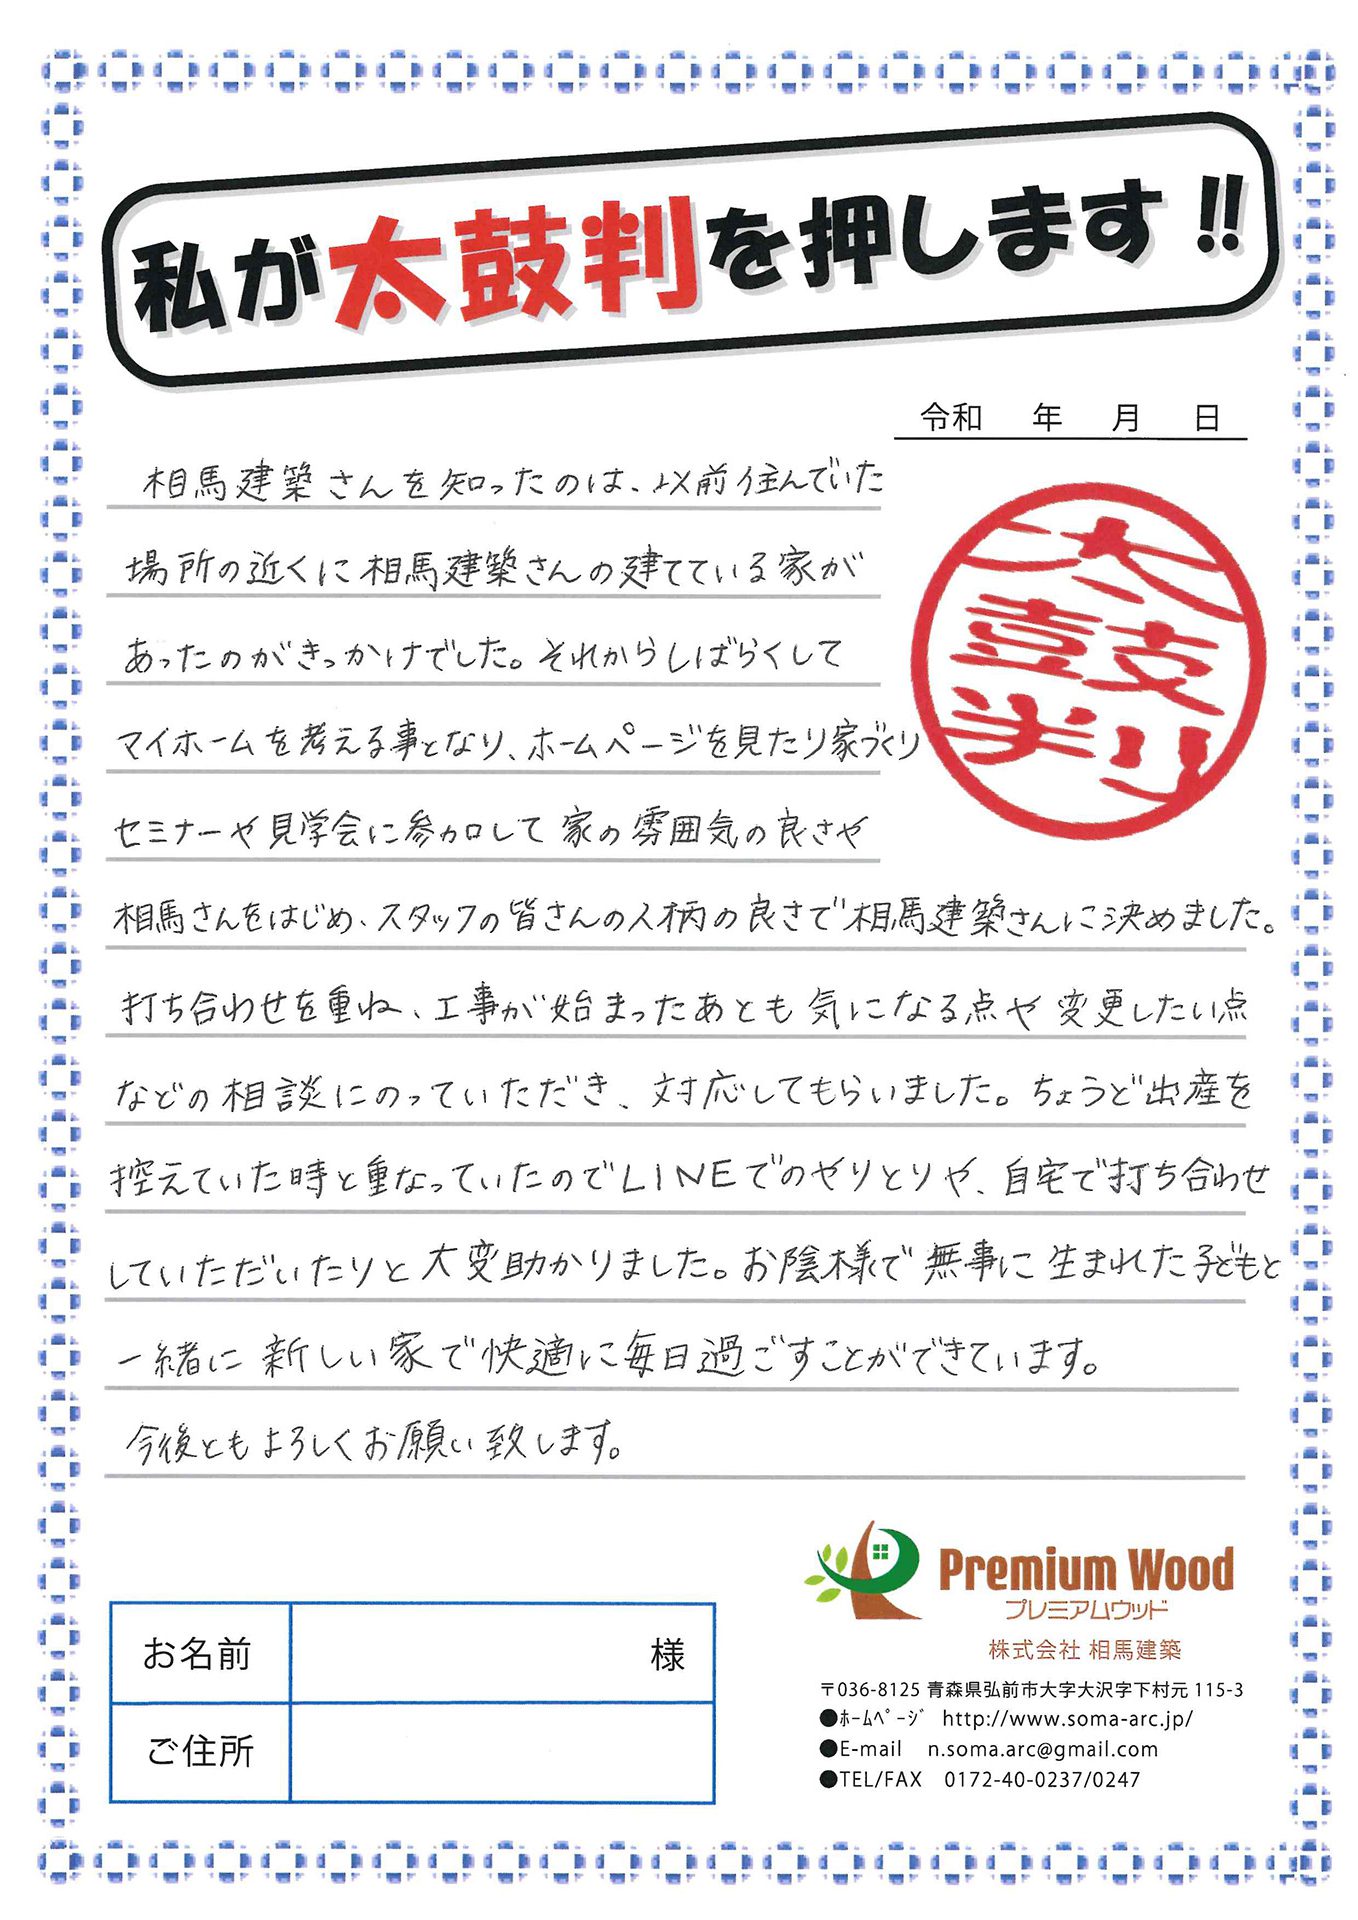 私が太鼓判を押します!!
令和　年　月　日
相馬建築さんを知ったのは、以前住んでいた
場所の近くに相馬建築さんの建てている家が
あったのがきっかけでした。それからしばらくして
マイホームを考える事となり、ホームページを見たり家づくり
セミナーや見学会に参加して家の雰囲気の良さや
相馬さんをはじめ、スタッフの皆さんの人柄の良さで相馬建築さんに決めました。
打ち合わせを重ね、工事が始まったあとも気になる点や変更したい点
などの相談にのっていただき、対応してもらいました。ちょうど出産を
控えていた時と重なっていたのでLINEでのやりとりや、自宅で打ち合わせ
していただいたりと大変助かりました。お陰様で無事に生まれた子どもと
一緒に新しい家で快適に毎日過ごすことができています。
今後ともよろしくお願い致します。
太鼓判
お名前　様
ご住所
Premium Wood
プレミアムウッド
株式会社 相馬建築
〒036-8125 青森県弘前市大字大沢字下村元 115-3
●ﾎｰﾑﾍﾟｰｼﾞ http://www.soma-arc.jp/
●E-mail n.soma.arc@gmail.com
●TEL/FAX 0172-40-0237/0247